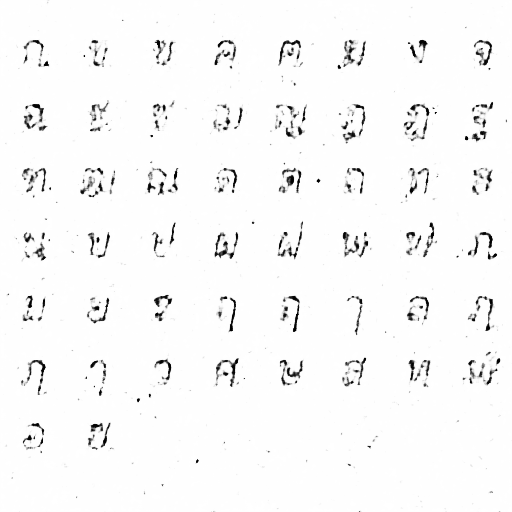 ก ข ฃ ค ฅ ฆ ง จ
ฉ ช ซ ฌ ญ ฎ ฏ ฐ
ฑ ฒ ณ ด ต ถ ท ธ
น บ ป ผ ฝ พ ฟ ภ
ม ย ร ฤ า ล ฦ
ฦ ว ศ ษ ส ห ฬ
อ ฮ